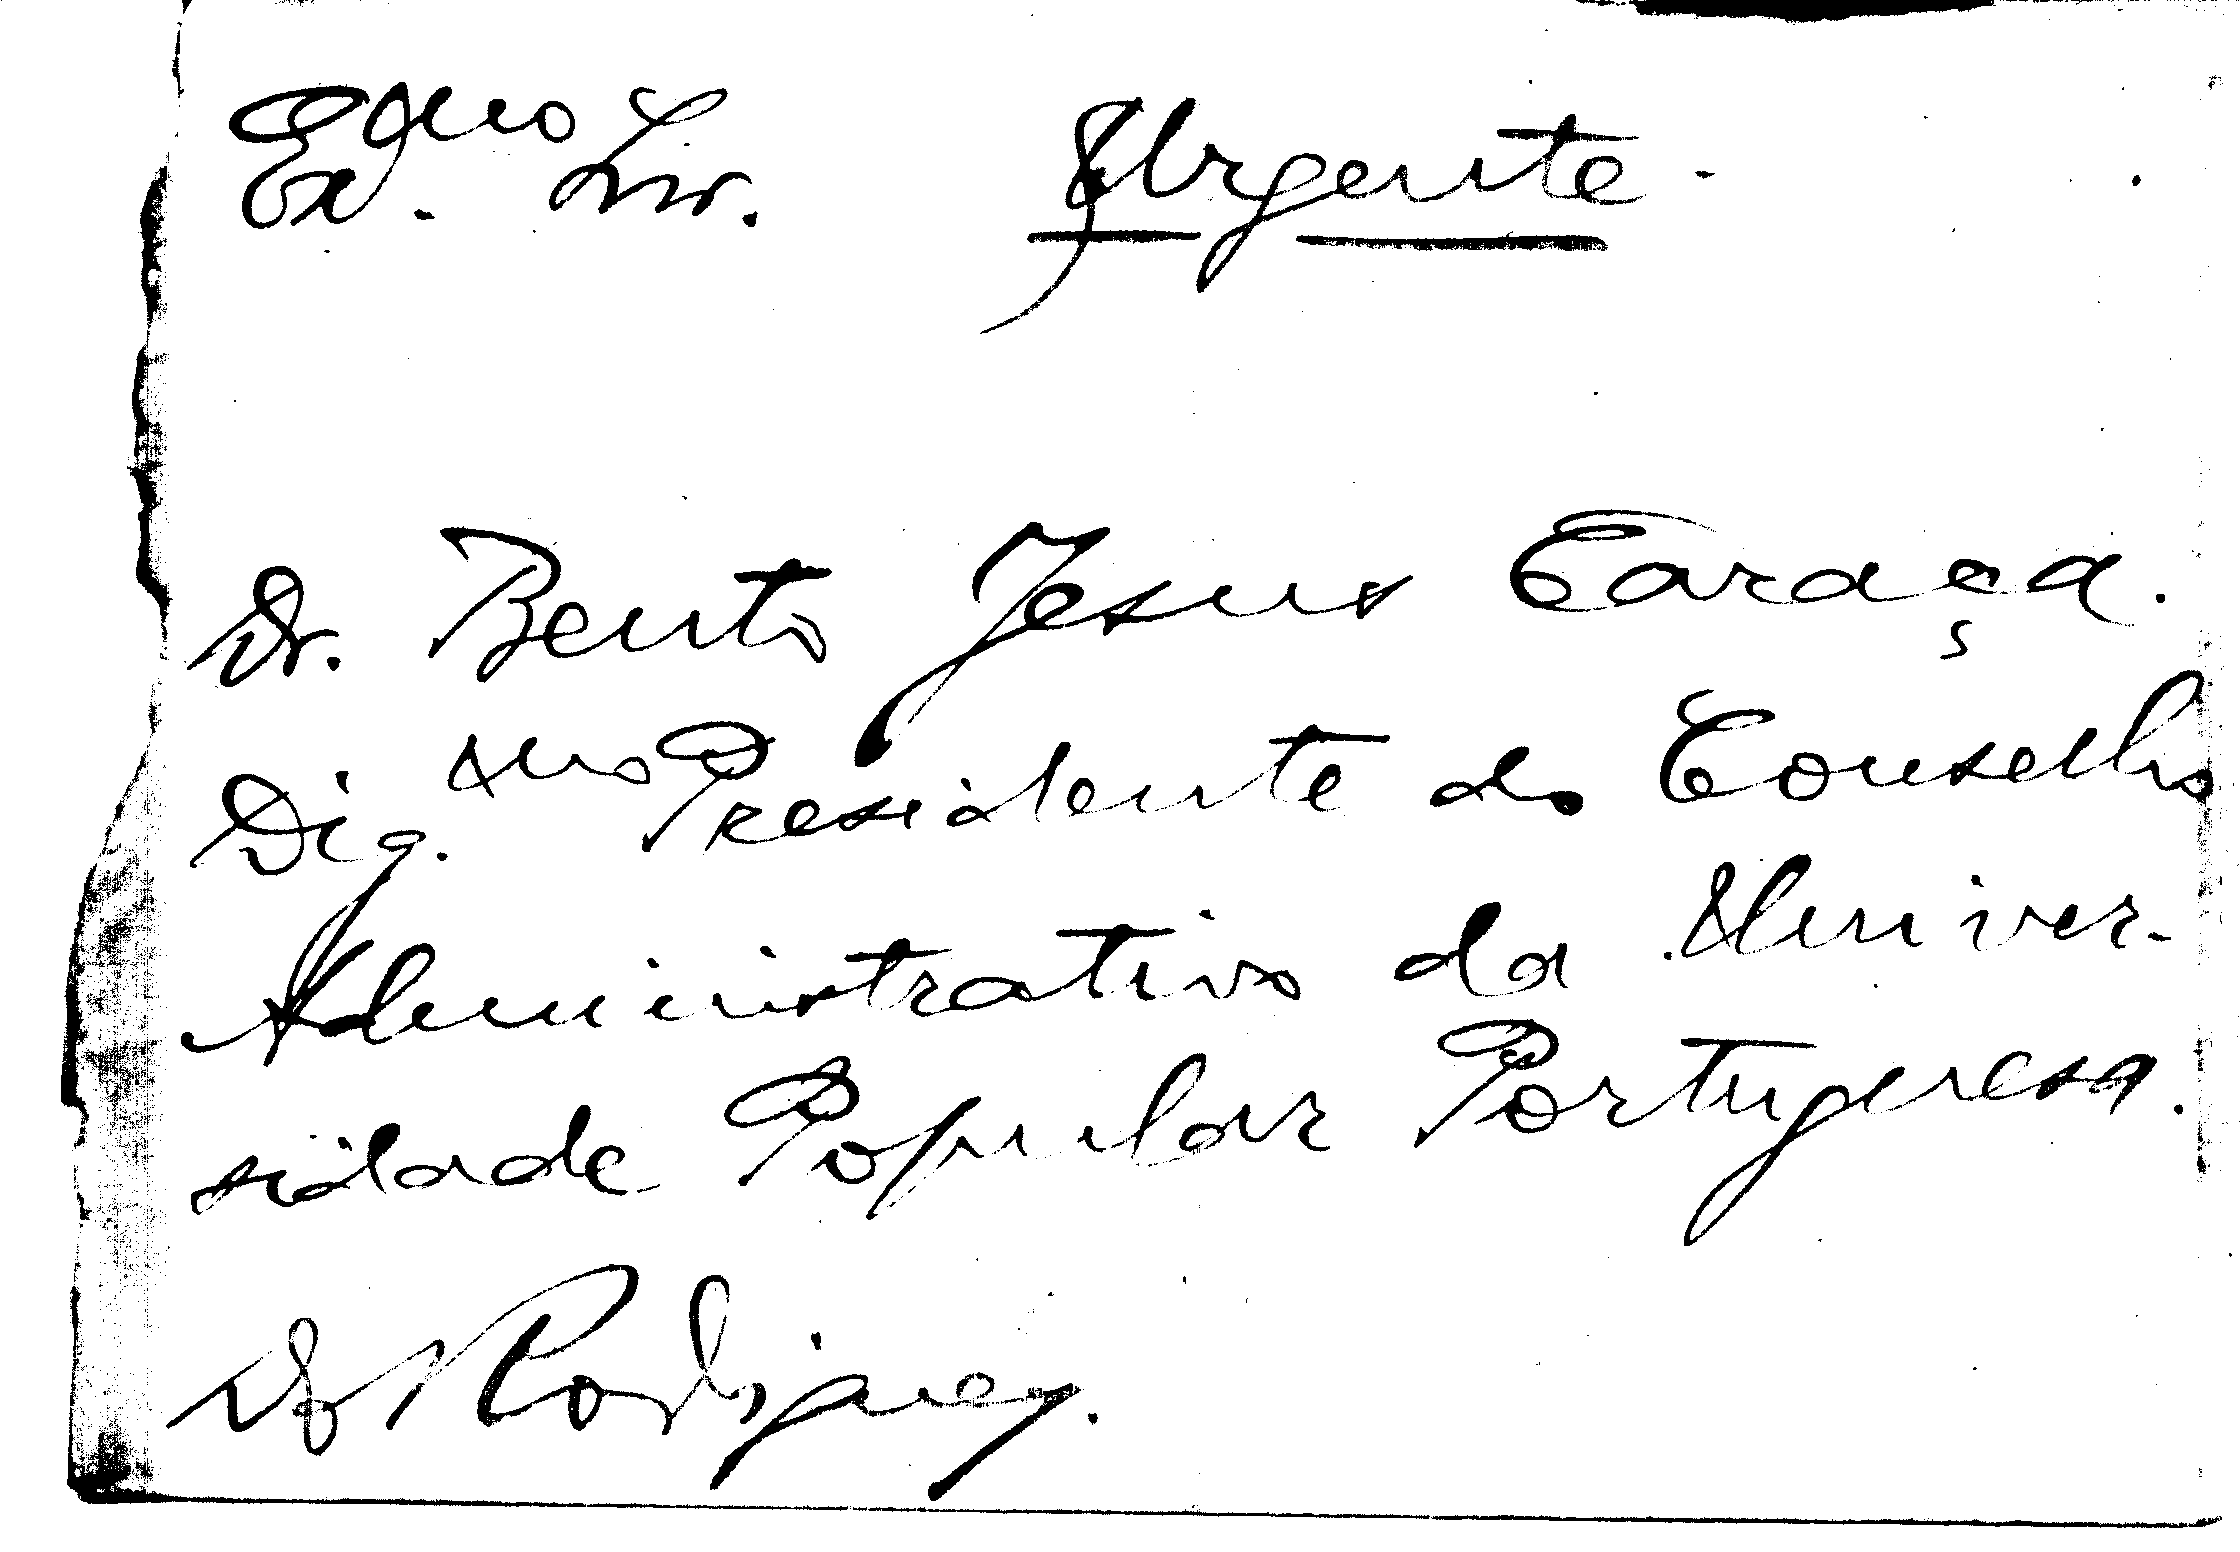 Ex.mo Snr. Urgente.
Dr. Bento Jesus Caraça.
Dig.mo Presidente do Conselho
Administrativo da Univer-
sidade Popular Portuguesa.
Rodrigues.